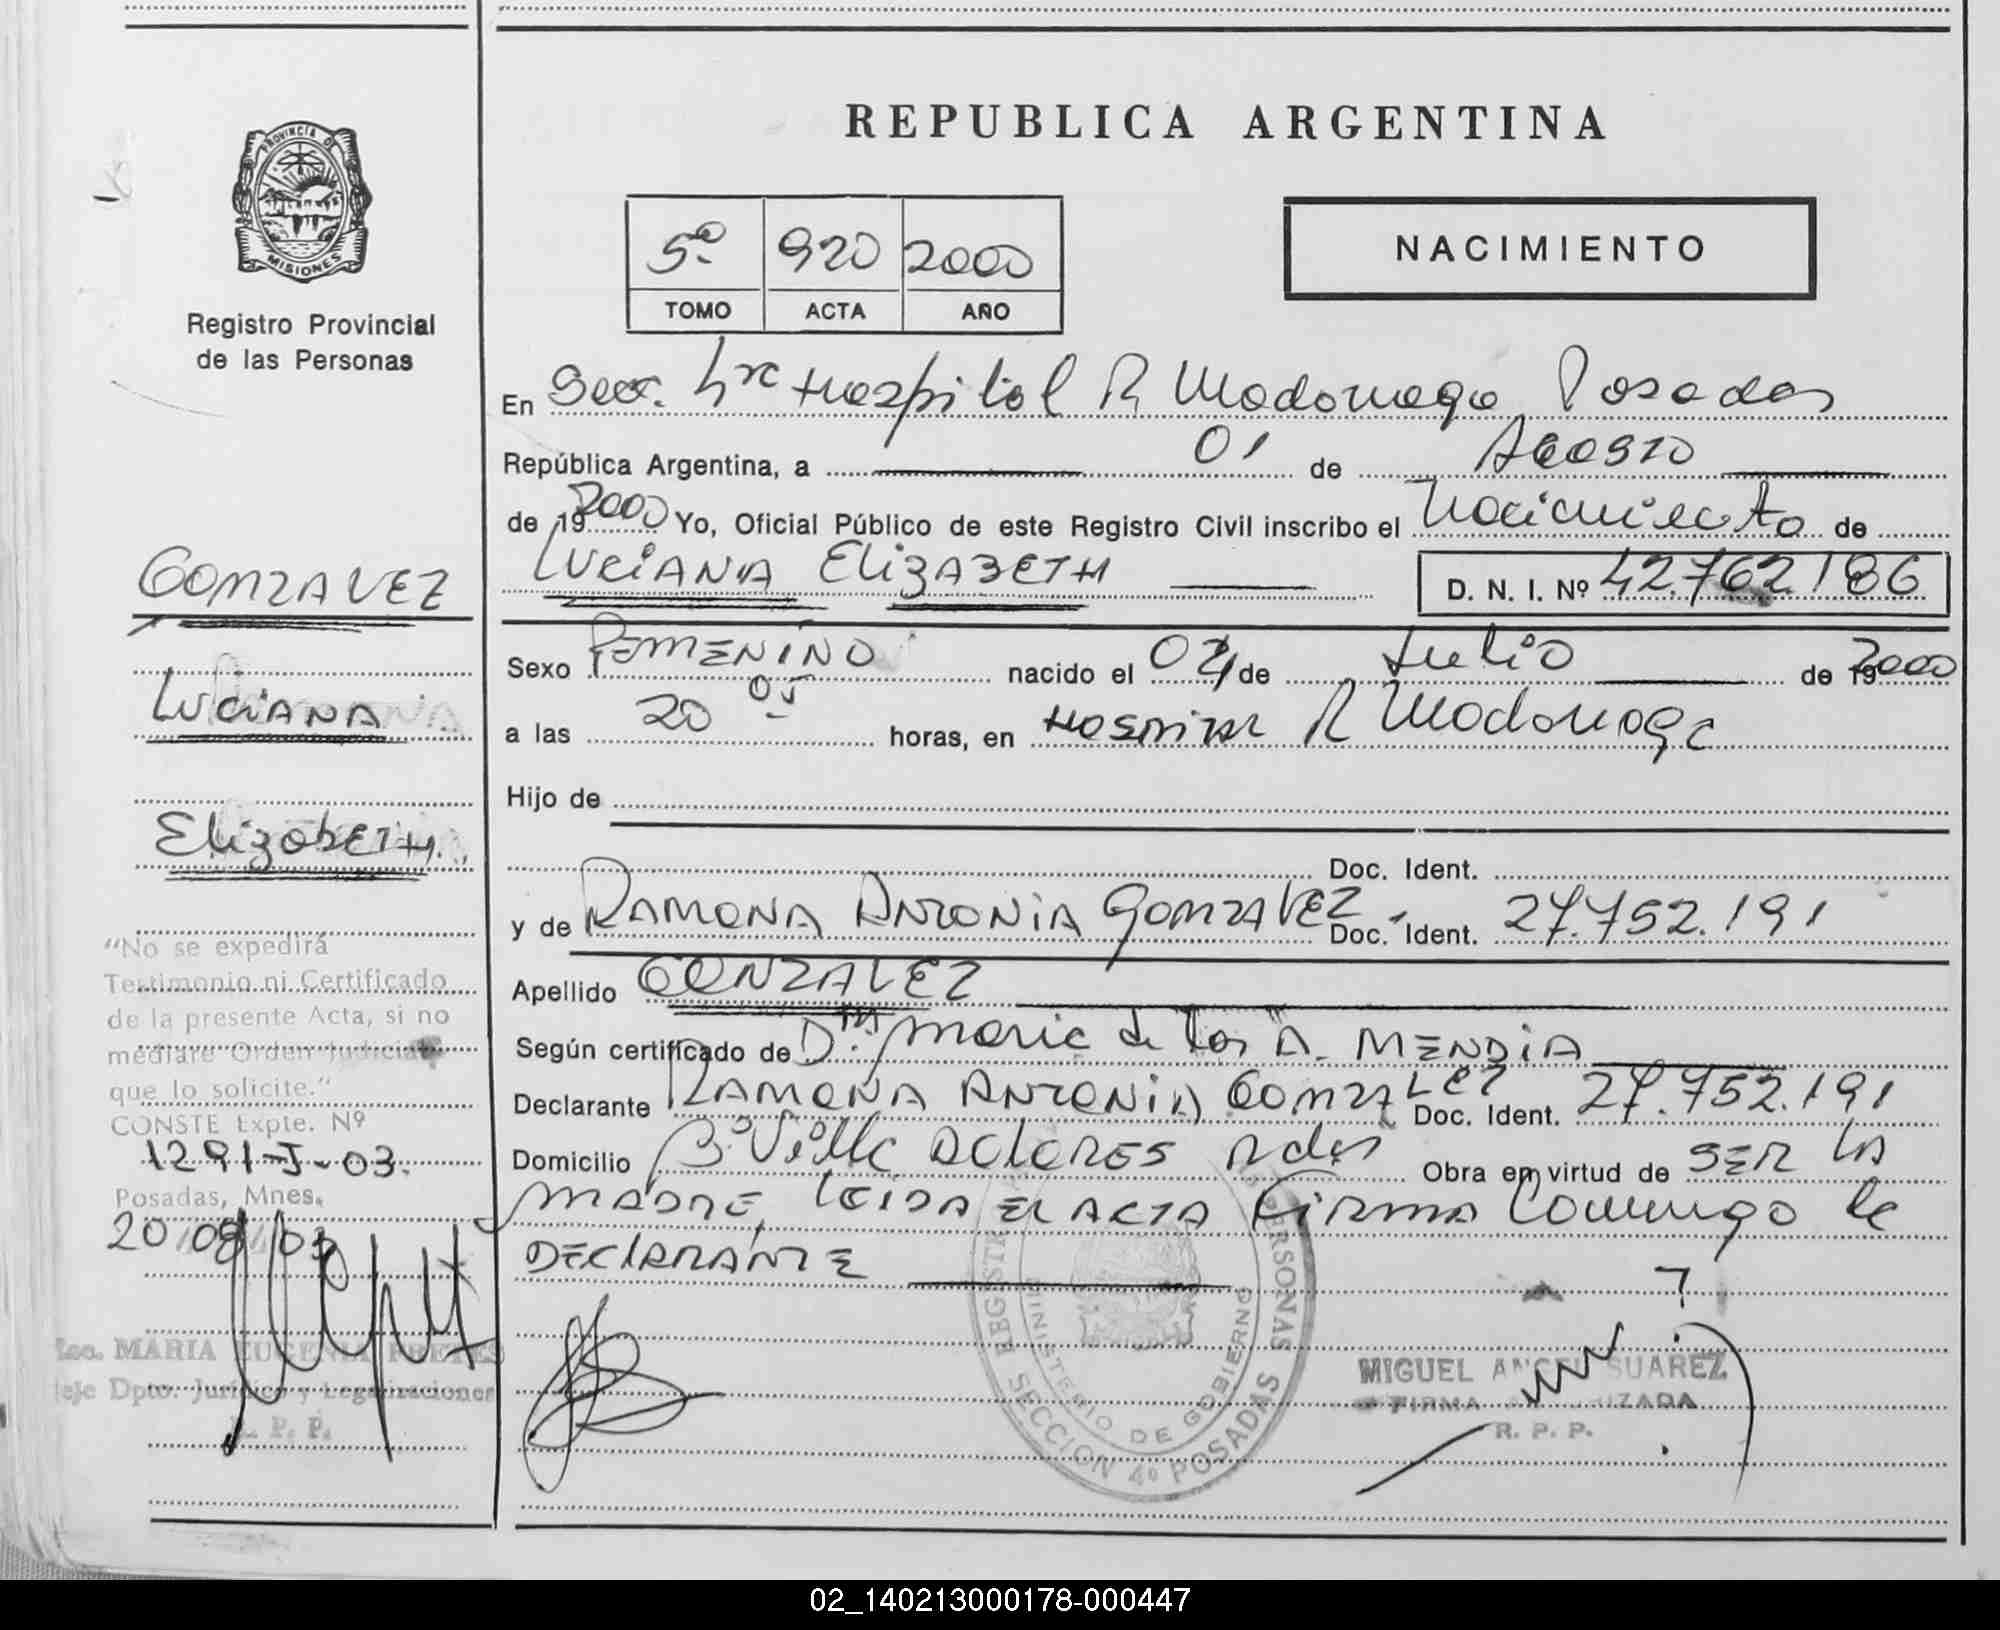 REPUBLICA ARGENTINA
PROVINCIA DE
MISIONES
Registro Provincial
de las Personas
5º 920 2000
TOMO ACTA AÑO
NACIMIENTO
En Secc. Hospital R Madariaga Posadas
República Argentina, a 01 de Agosto
de 19 2000 Yo, Oficial Público de este Registro Civil inscribo el Nacimiento de
LUCIANA ELIZABETH D. N. I. Nº 42.762.186
Sexo FEMENINO nacido el de Julio de 19 2000
a las 20 05 horas, en HOSPITAL R Madariaga
Hijo de
Doc. Ident.
y de RAMONA ANTONIA GONZALEZ Doc. Ident. 27.752.191
Apellido GONZALEZ
Según certificado de Maria de los A. MENDIA
Declarante RAMONA ANTONIA GONZALEZ Doc. Ident. 27.752.191
Domicilio Bº Villa DOLORES Pdas Obra en virtud de SER LA
MADRE, LEIDA EL ACTA FIRMA Conmigo la
DECLARANTE
GONZALEZ
LUCIANA
ElizabETH
"No se expedirá
Testimonio ni Certificado
de la presente Acta, si no
mediare Orden Judicial
que lo solicite."
CONSTE Expte. Nº
1291-J-03.
Posadas, Mnes.
20/08/03
Esc. MARIA EUGENIA PRETES
Jefe Dpto. Jurídico y Legalizaciones
R. P. P.
MINISTERIO DE GOBIERNO
SECCION 4º POSADAS
PERSONAS
MIGUEL ANGEL SUAREZ
FIRMA AUTORIZADA
R. P. P.
02_140213000178-000447